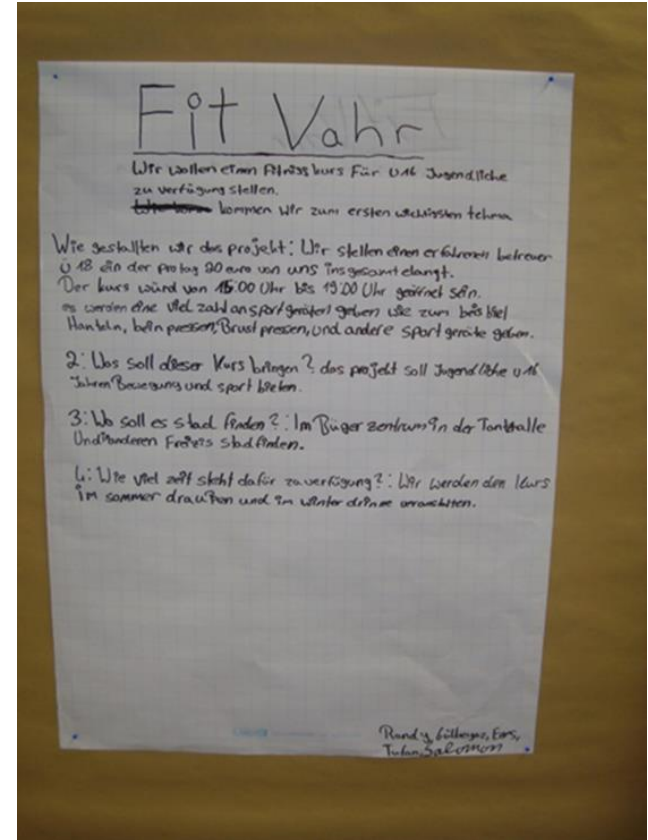 Fit Vahr
Wir wollen einen Fitniss kurs Für U16 Jugendliche
zu verfügung stellen.
kommen wir zum ersten wichtigsten tehma
Wie gestallten wir das projekt: Wir stellen einen erfahrenen betreuer
ü 18 ein der pro tag 20 euro von uns insgesamt
Der kurs würd von 15:00 Uhr bis 19:00 Uhr geöffnet sein.
es werden eine viel zahl an sportgeräten geben wie zum beisbiel
Hanteln, bein pressen, Brust pressen, und andere sport geräte geben.
2: Was soll dieser Kurs bringen? das projekt soll Jugendliche u 16
Jahren Bewegung und sport bieten.
3: Wo soll es stad finden?: Im Büger zentrum in der
Und anderen Freizis stadfinden.
4: Wie viel zeit steht dafür zu verfügung?: Wir werden den Kurs
im sommer draußen und im winter drinne
Randy, Enes,
Tufan, Salomon